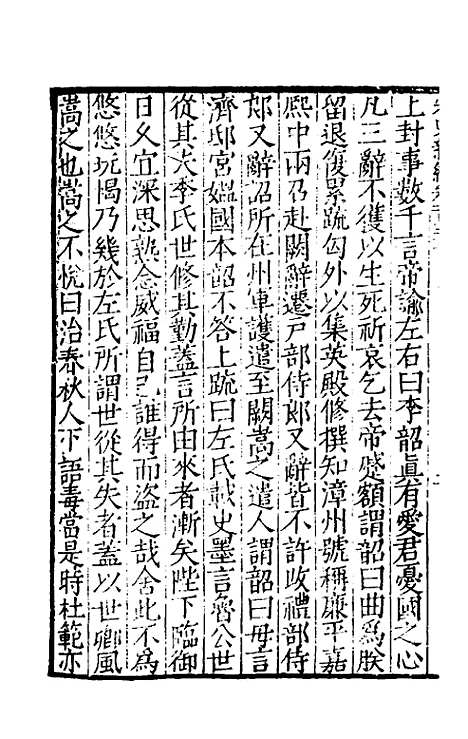 上封事數千言帝諭左右曰李韶真有愛君憂國之心
凡三辭不獲以生死祈哀乞去帝蹙額謂韶曰曲爲朕
留退復累䟽匄外以集英殿修撰知漳州號稱廉平嘉
熙中兩召赴闕辭遷户部侍郎又辭皆不許改禮部侍
郎又辭詔所在州軍護遣至闕嵩之遣人謂韶曰毋言
濟邸宮媼國本韶不答上䟽曰左氏載史墨言魯公世
從其失李氏世修其勤蓋言所由來者漸矣陛下臨御
日久宜深思熟念威福自己誰得而盜之哉舍此不爲
悠悠玩愒乃幾於左氏所謂世從其失者蓋以世卿風
嵩之也嵩之不悅曰治春秋人下語毒當是時杜範亦